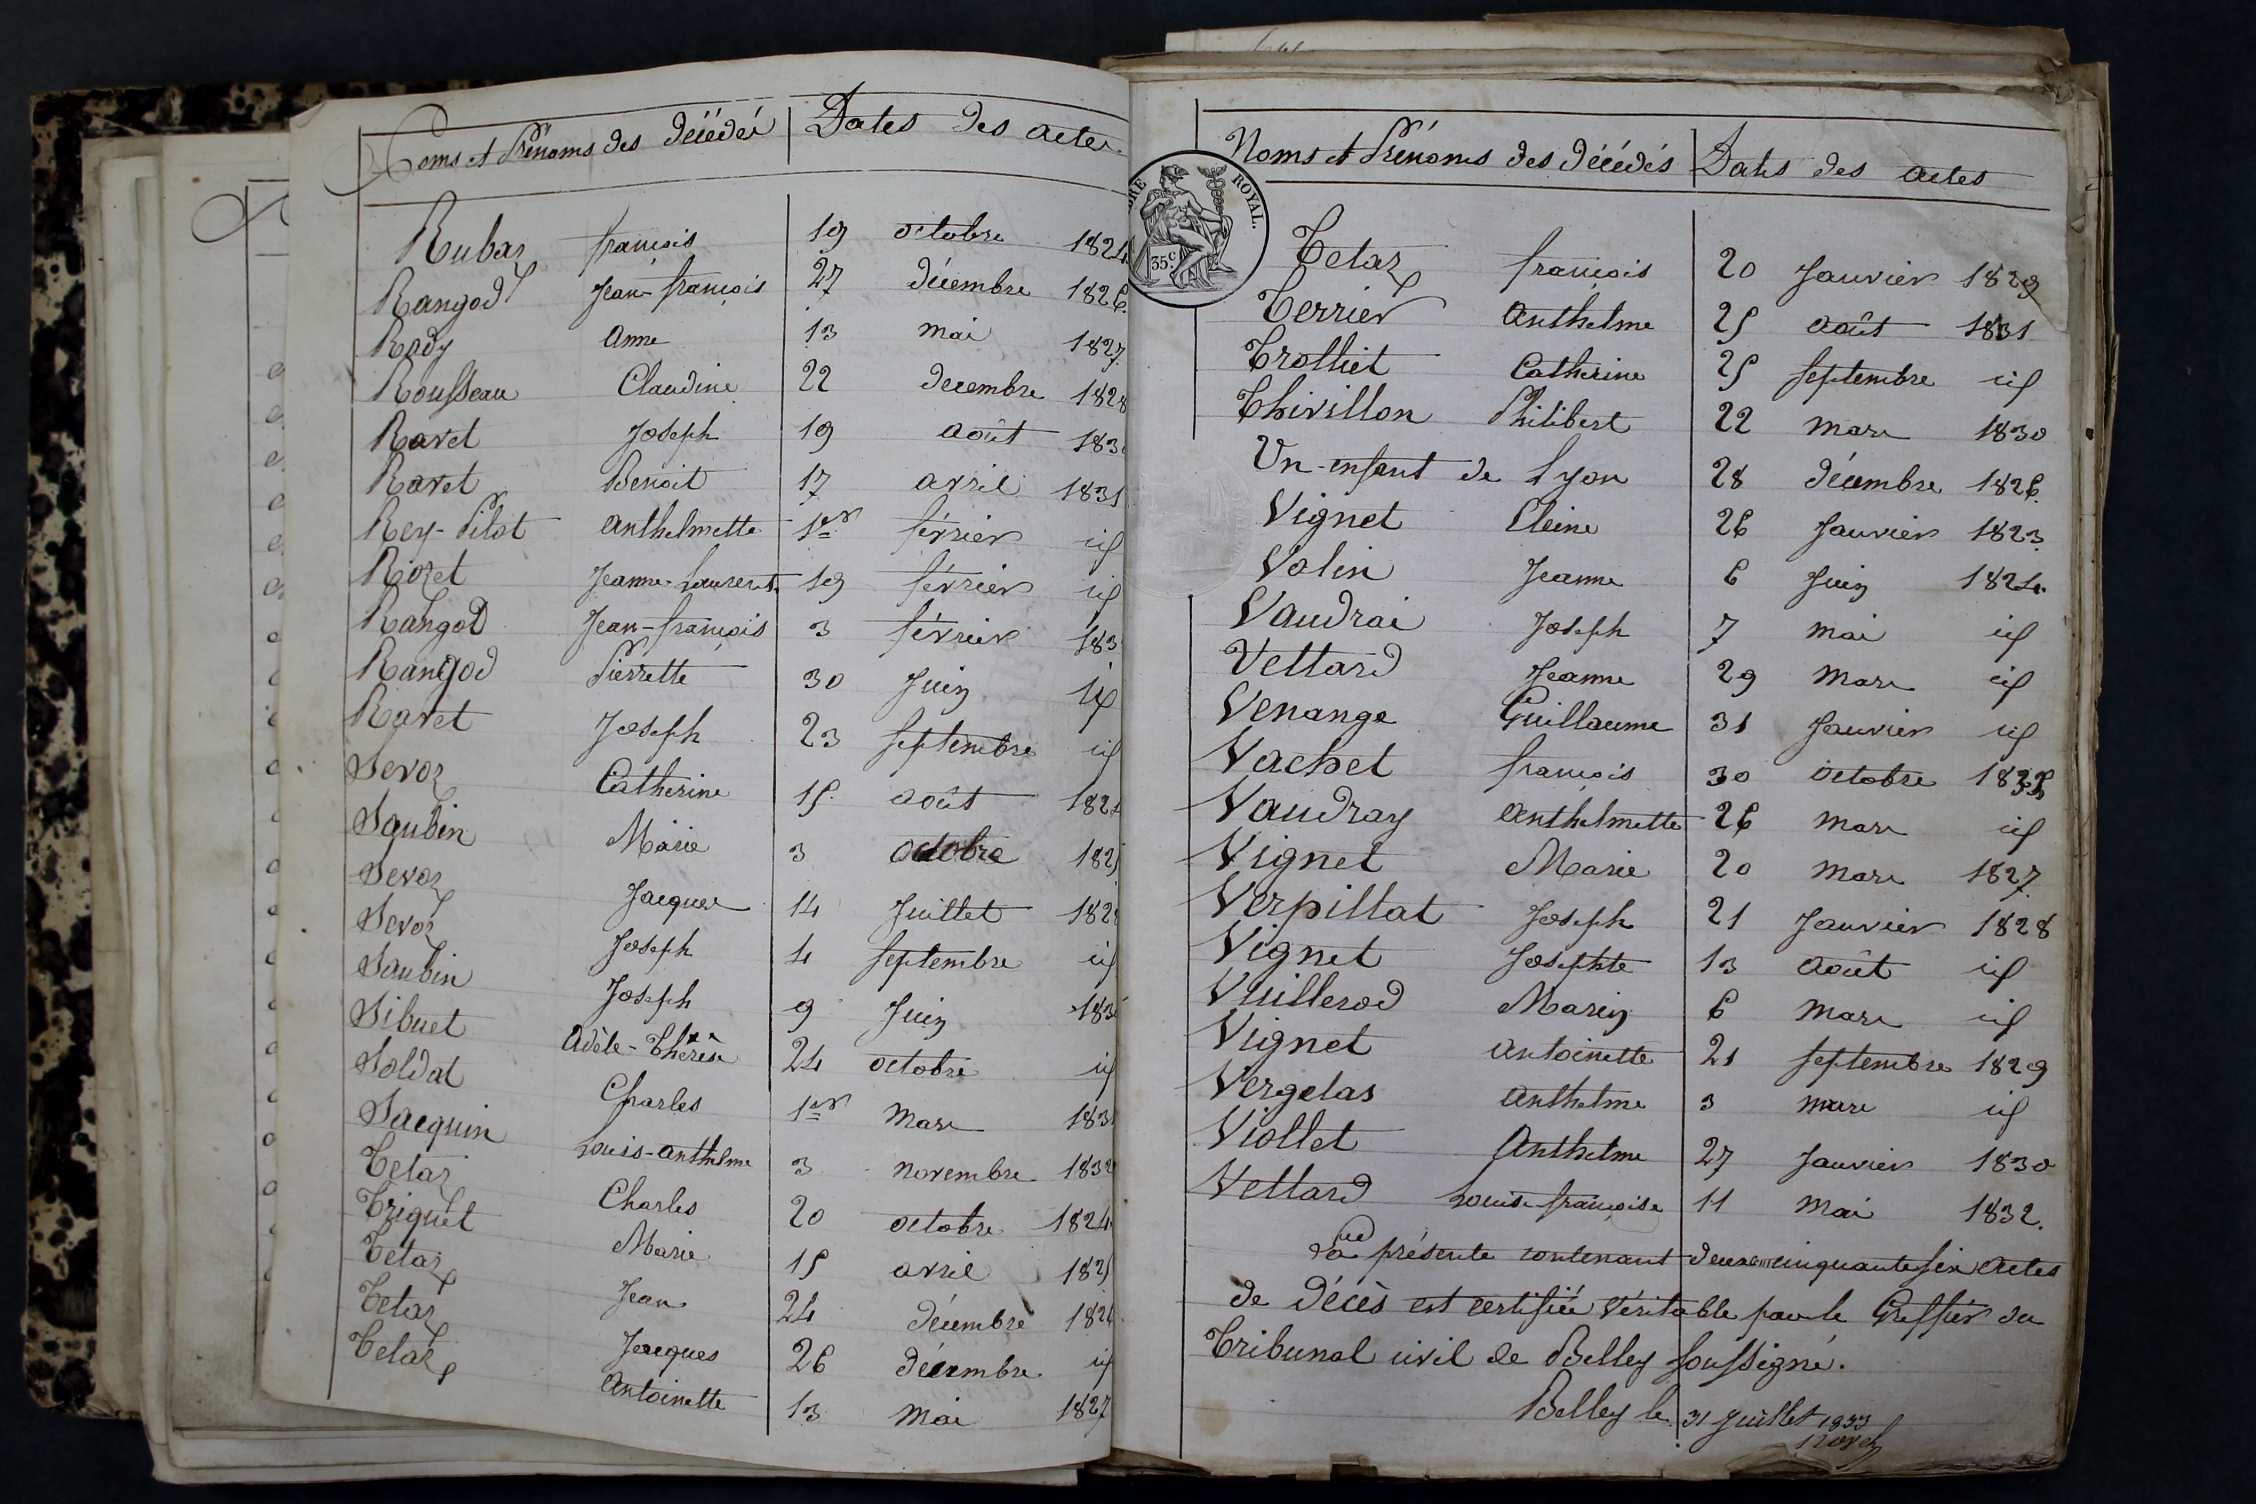 Noms et Prénoms des décédés | Dates des actes
Rubaz françois 19 octobre 1824
Rangod Jean-françois 27 décembre 1826
Rady anne 13 mai 1827
Rousseau Claudine 22 decembre 1828
Ravet Joseph 19 août
Ravet Benoit 17 avril 1831
Rey-Pilot anthelmette 1er février id
Rozet Jeanne-Laurent 19 février id
Rangod Jean-françois 3 février
Rangod Pierrette 30 Juin id
Ravet Joseph 23 septembre id
Sevoz Catherine 15 août
Saubin Marie 3 octobre 1825
Sevoz Jacques 14 Juillet
Sevoz Joseph 4 septembre id
Saubin Joseph 9 Juin
Sibuet adèle-Thérèse 24 octobre id
Soldat Charles 1er mars
Jacquin Louis-anthelme 3 novembre 1832
Tetaz Charles 20 octobre 1824
Triquet Marie 15 avril 1825
Tetaz Jean 24 décembre
Tetaz Jacques 26 décembre id
Tetaz Antoinette 13 mai 1827
ROYAL.
35c
Noms et Prénoms des décédés | Dates des actes
Tetaz françois 20 Janvier 1829
Terrier anthelme 25 août 1831
Trolliet Catherine 25 septembre id
Thivillon Philibert 22 mars 1830
Un-enfant de Lyon 28 décembre 1826
Vignet Cleine 26 Janvier 1823
Volin Jeanne 6 Juin 1824
Vaudrai Joseph 7 mai id
Vettard Jeanne 29 mars id
Venange Guillaume 31 Janvier id
Vachet françois 30 octobre
Vaudray anthelmette 26 mars id
Vignet Marie 20 mars 1827
Verpillat Joseph 21 Janvier 1828
Vignet Josephte 13 août id
Vuillerod Marin 6 mars id
Vignet antoinette 21 septembre 1829
Vergelas anthelme 3 mars id
Viollet Anthelme 27 Janvier 1830
Vettard Louise-françoise 11 mai 1832.
La présente contenant deux cent cinquante six actes
de décès est certifiée véritable par le Greffier du
Tribunal civil de Belley soussigné.
Belley le 31 Juillet 1833